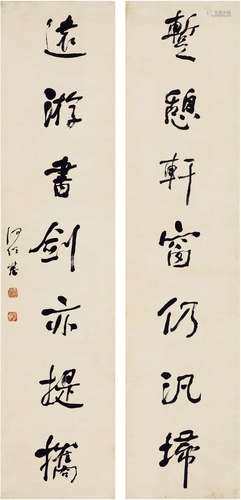 暫憩軒窗仍汛掃
遠游書劍亦提攜
何紹基